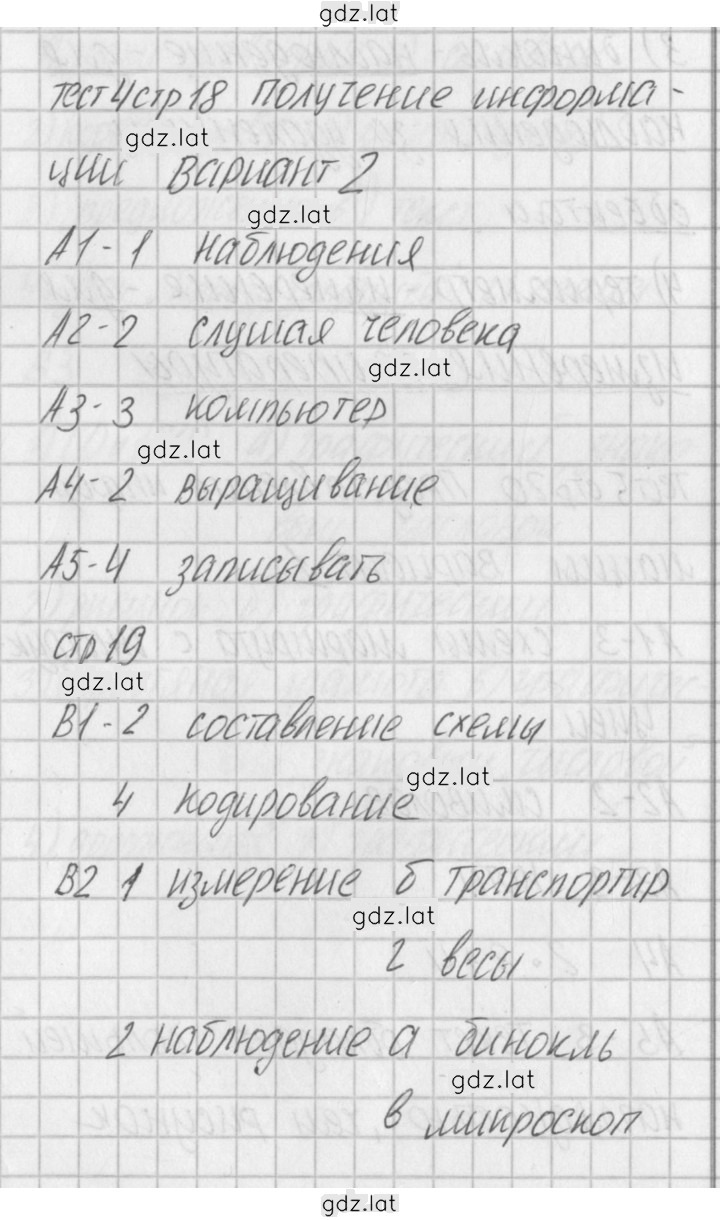 gdz.lat
тест 4 стр 18 получение информа-
gdz.lat
ции вариант 2
gdz.lat
А1 - 1 наблюдения
А2 - 2 слушая человека
gdz.lat
А3 - 3 компьютер
gdz.lat
А4 - 2 выращивание
А5 - 4 записывать
стр 19
gdz.lat
В1 - 2 составление схемы
gdz.lat
4 кодирование
В2 1 измерение б транспортир
gdz.lat
г весы
2 наблюдение а бинокль
gdz.lat
в микроскоп
gdz.lat